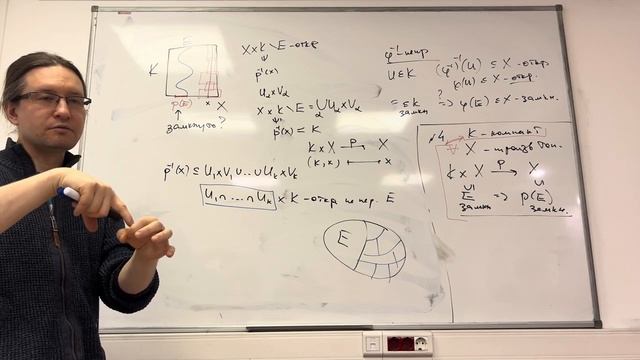 E
K
p(E)
x
X
замкнуто?
X×K \ E - откр
p⁻¹(x)
U_α×V_α
X×K \ E = ∪ U_α×V_α
α
p⁻¹(x) ≅ K
K×X →p X
(k,x) ↦ x
p⁻¹(x) ⊆ U₁×V₁ ∪ ... ∪ U_k×V_k
U₁∩...∩U_k × K - откр не пер. E
E
φ⁻¹-непр
U ⊆ K
(φ⁻¹)⁻¹(U) ⊆ X - откр
φ(U) ⊆ X - откр.
E ⊆ K
замкн
?
⇒ φ(E) ⊆ X - замкн.
№4
K - компакт
∀ X - произв топ.
K×X →p X
∪ı ∪ı
E ⇒ p(E)
замкн замкн.